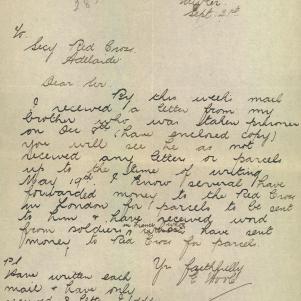 28
Sept. 21st
To
Secy Red Cross
Adelaide
Dear Sir
By this week mail
I received a letter from my
brother who was taken prisoner
on Dec (have enclosed copy)
you will see he as not
received any letter or parcels
up to the time of writing
May 19th I know several have
forwarded money to the Red Cross
in London for parcels to be sent
to him & have received word
from soldiers have sent
money to Red Cross for parcels.
Yrs faithfully
E
Have written each
mail & have only
received